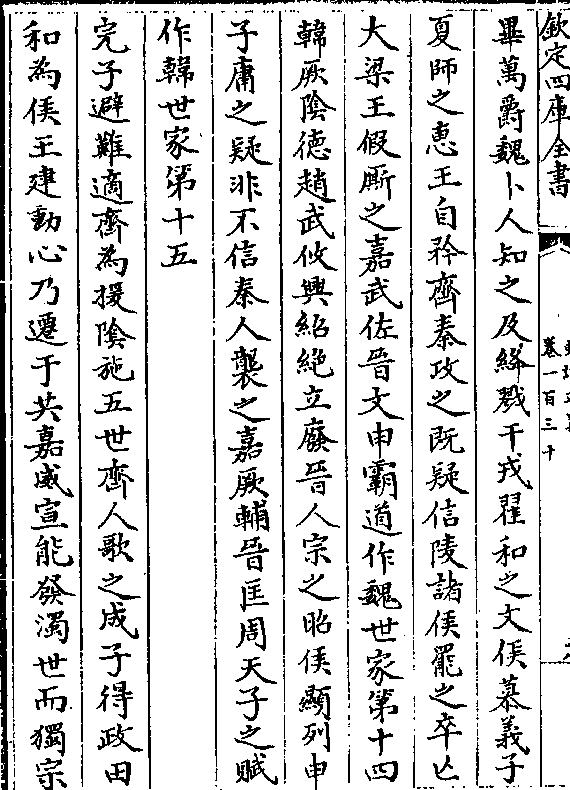 欽定四庫全書
卷一百三十
畢萬爵魏卜人知之及絳戮干戎翟和之文侯慕義子
夏師之惠王自矜齊秦攻之既疑信陵諸侯罷之卒亡
大梁王假廝之嘉武佐晉文申霸道作魏世家第十四
韓厥陰德趙武攸興紹絕立廢晉人宗之昭侯顯列申
子庸之疑非不信秦人襲之嘉厥輔晉匡周天子之賦
作韓世家第十五
完子避難適齊為援陰施五世齊人歌之成子得政田
和為侯王建動心乃遷于共嘉威宣能發濁世而獨宗